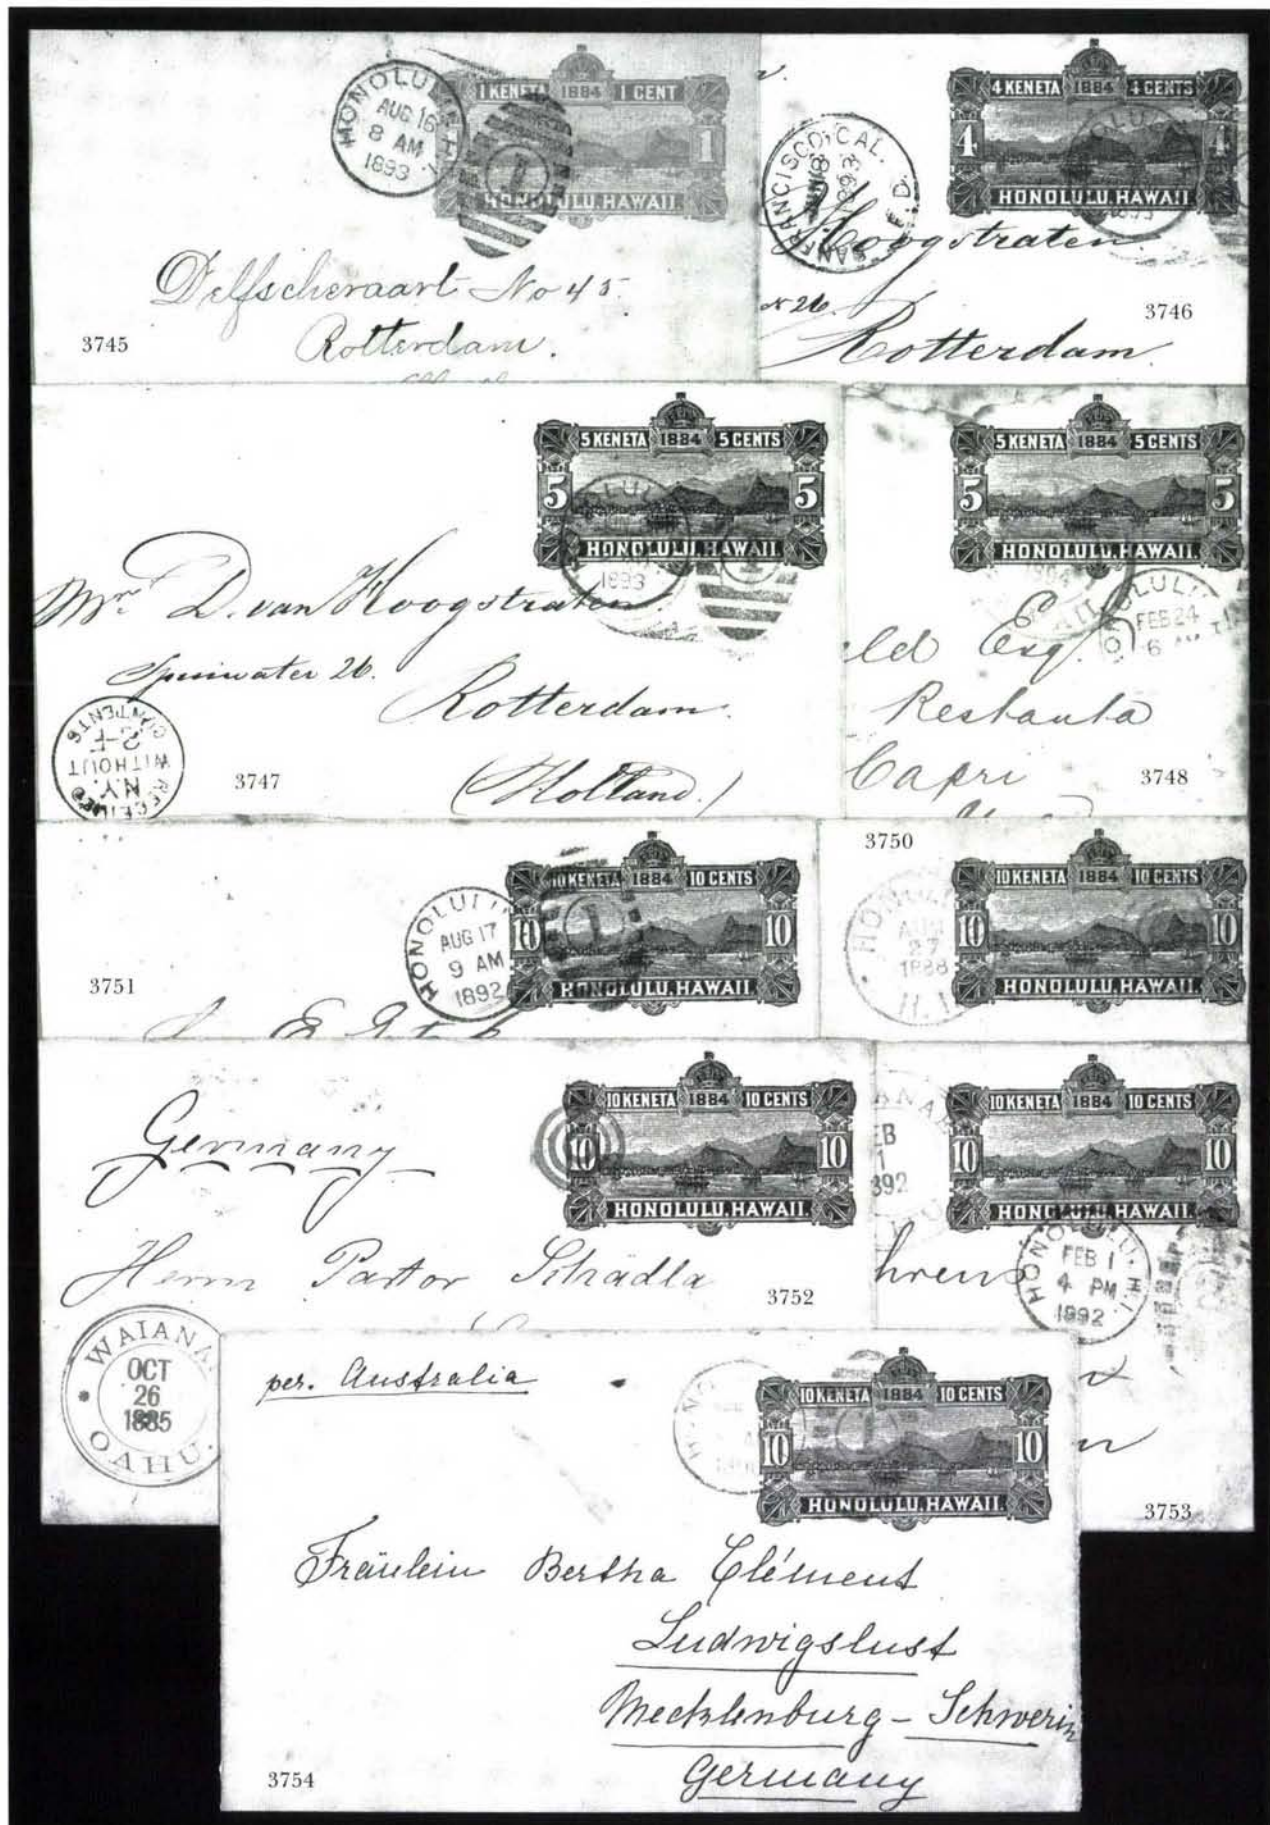 HONOLULU H.I.
AUG 16
8 AM
1893
1 KENETA 1884 1 CENT
1
HONOLULU, HAWAII.
Delfschevaart No 45
Rotterdam.
3745
4 KENETA 1884 4 CENTS
4 4
HONOLULU, HAWAII.
SAN FRANCISCO, CAL.
1893
Hoogstraten
26.
Rotterdam
3746
5 KENETA 1884 5 CENTS
5 5
HONOLULU, HAWAII.
1893
Mr. D. van Hoogstraten
Spuiwater 26.
Rotterdam.
(Holland.)
RECEIVED
N.Y.
WITHOUT
CONTENTS
3747
5 KENETA 1884 5 CENTS
5 5
HONOLULU, HAWAII.
HONOLULU
FEB 24
6 AM
eld Esq.
Restaula
Capri
3748
10 KENETA 1884 10 CENTS
10 10
HONOLULU, HAWAII.
HONOLULU
AUG 17
9 AM
1892
3751
3750
10 KENETA 1884 10 CENTS
10 10
HONOLULU, HAWAII.
HONOLULU
AUG
27
1888
H.I.
10 KENETA 1884 10 CENTS
10 10
HONOLULU, HAWAII.
Germany
Herrn Pastor Schädla
WAIANA
OCT
26
1885
OAHU.
3752
10 KENETA 1884 10 CENTS
10 10
HONOLULU, HAWAII.
ANA
EB
1
892
HONOLULU H.I.
FEB 1
4 PM
1892
hrens
3753
per. Australia
10 KENETA 1884 10 CENTS
10 10
HONOLULU, HAWAII.
Fräulein Bertha Clément
Ludwigslust
Mecklenburg - Schwerin
Germany
3754